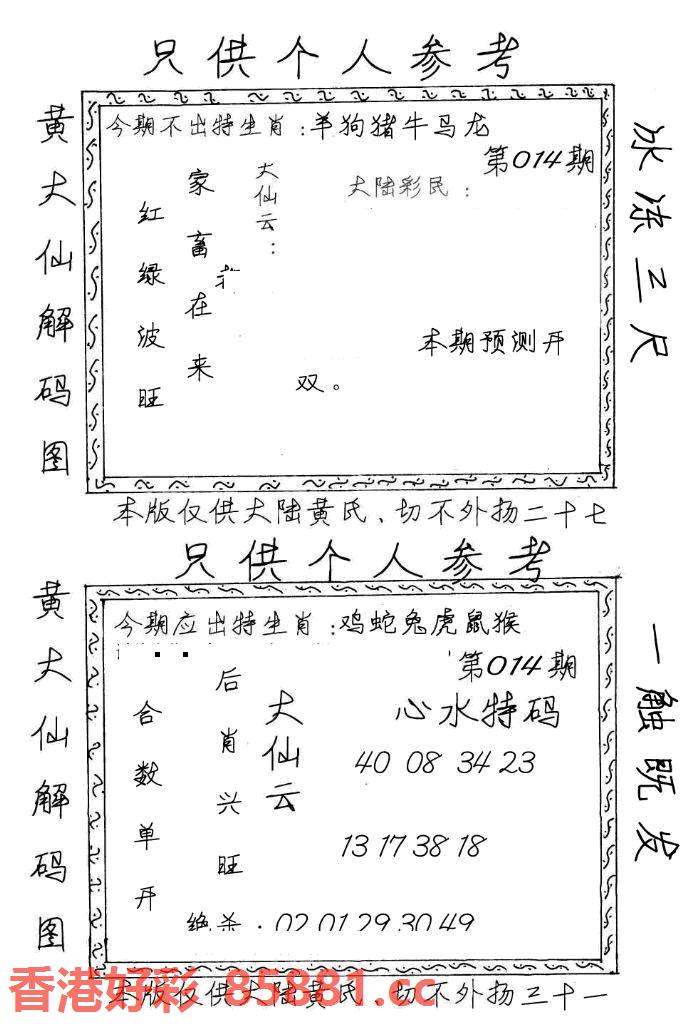 只供个人参考
黄大仙解码图
今期不出特生肖：羊狗猪牛马龙
第014期
大仙云：
大陆彩民：
家畜在来
红绿波旺
本期预测开
双。
冰冻三尺
本版仅供大陆黄氏、切不外扬二十七
只供个人参考
黄大仙解码图
今期应出特生肖：鸡蛇兔虎鼠猴
第014期
后肖兴旺
合数单开
大仙云
心水特码
40 08 34 23
13 17 38 18
绝杀：02 01 29 30 49
一触既发
本版仅供大陆黄氏、切不外扬三十一
香港好彩 85881.cc